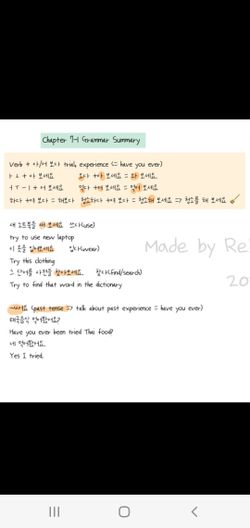 Chapter 7-1 Grammar Summary
Verb + 아/어 보다 trial, experience (= have you ever)
ㅏ ㅗ + 아 보세요 오다 +아 보세요 = 와 보세요
ㅓ ㅜ ㅡ ㅣ + 어 보세요 +어 보세요 =
하다 +여 보다 = 해보다 청소하다 +여 보세요 = 청소해 보세요 => 청소를 해 보세요
새 노트북을 써 보세요 쓰다(use)
try to use new laptop
이 옷을 입어보세요 입다(wear)
Try this clothing
그 단어를 사전을 찾아보세요. 찾다(find/search)
Try to find that word in the dictionary
(past tense => talk about past experience = have you ever)
태국음식 먹어봤어요?
Have you ever been tried Thai food?
네 먹어봤어요.
Yes I tried.
Made by Re
20